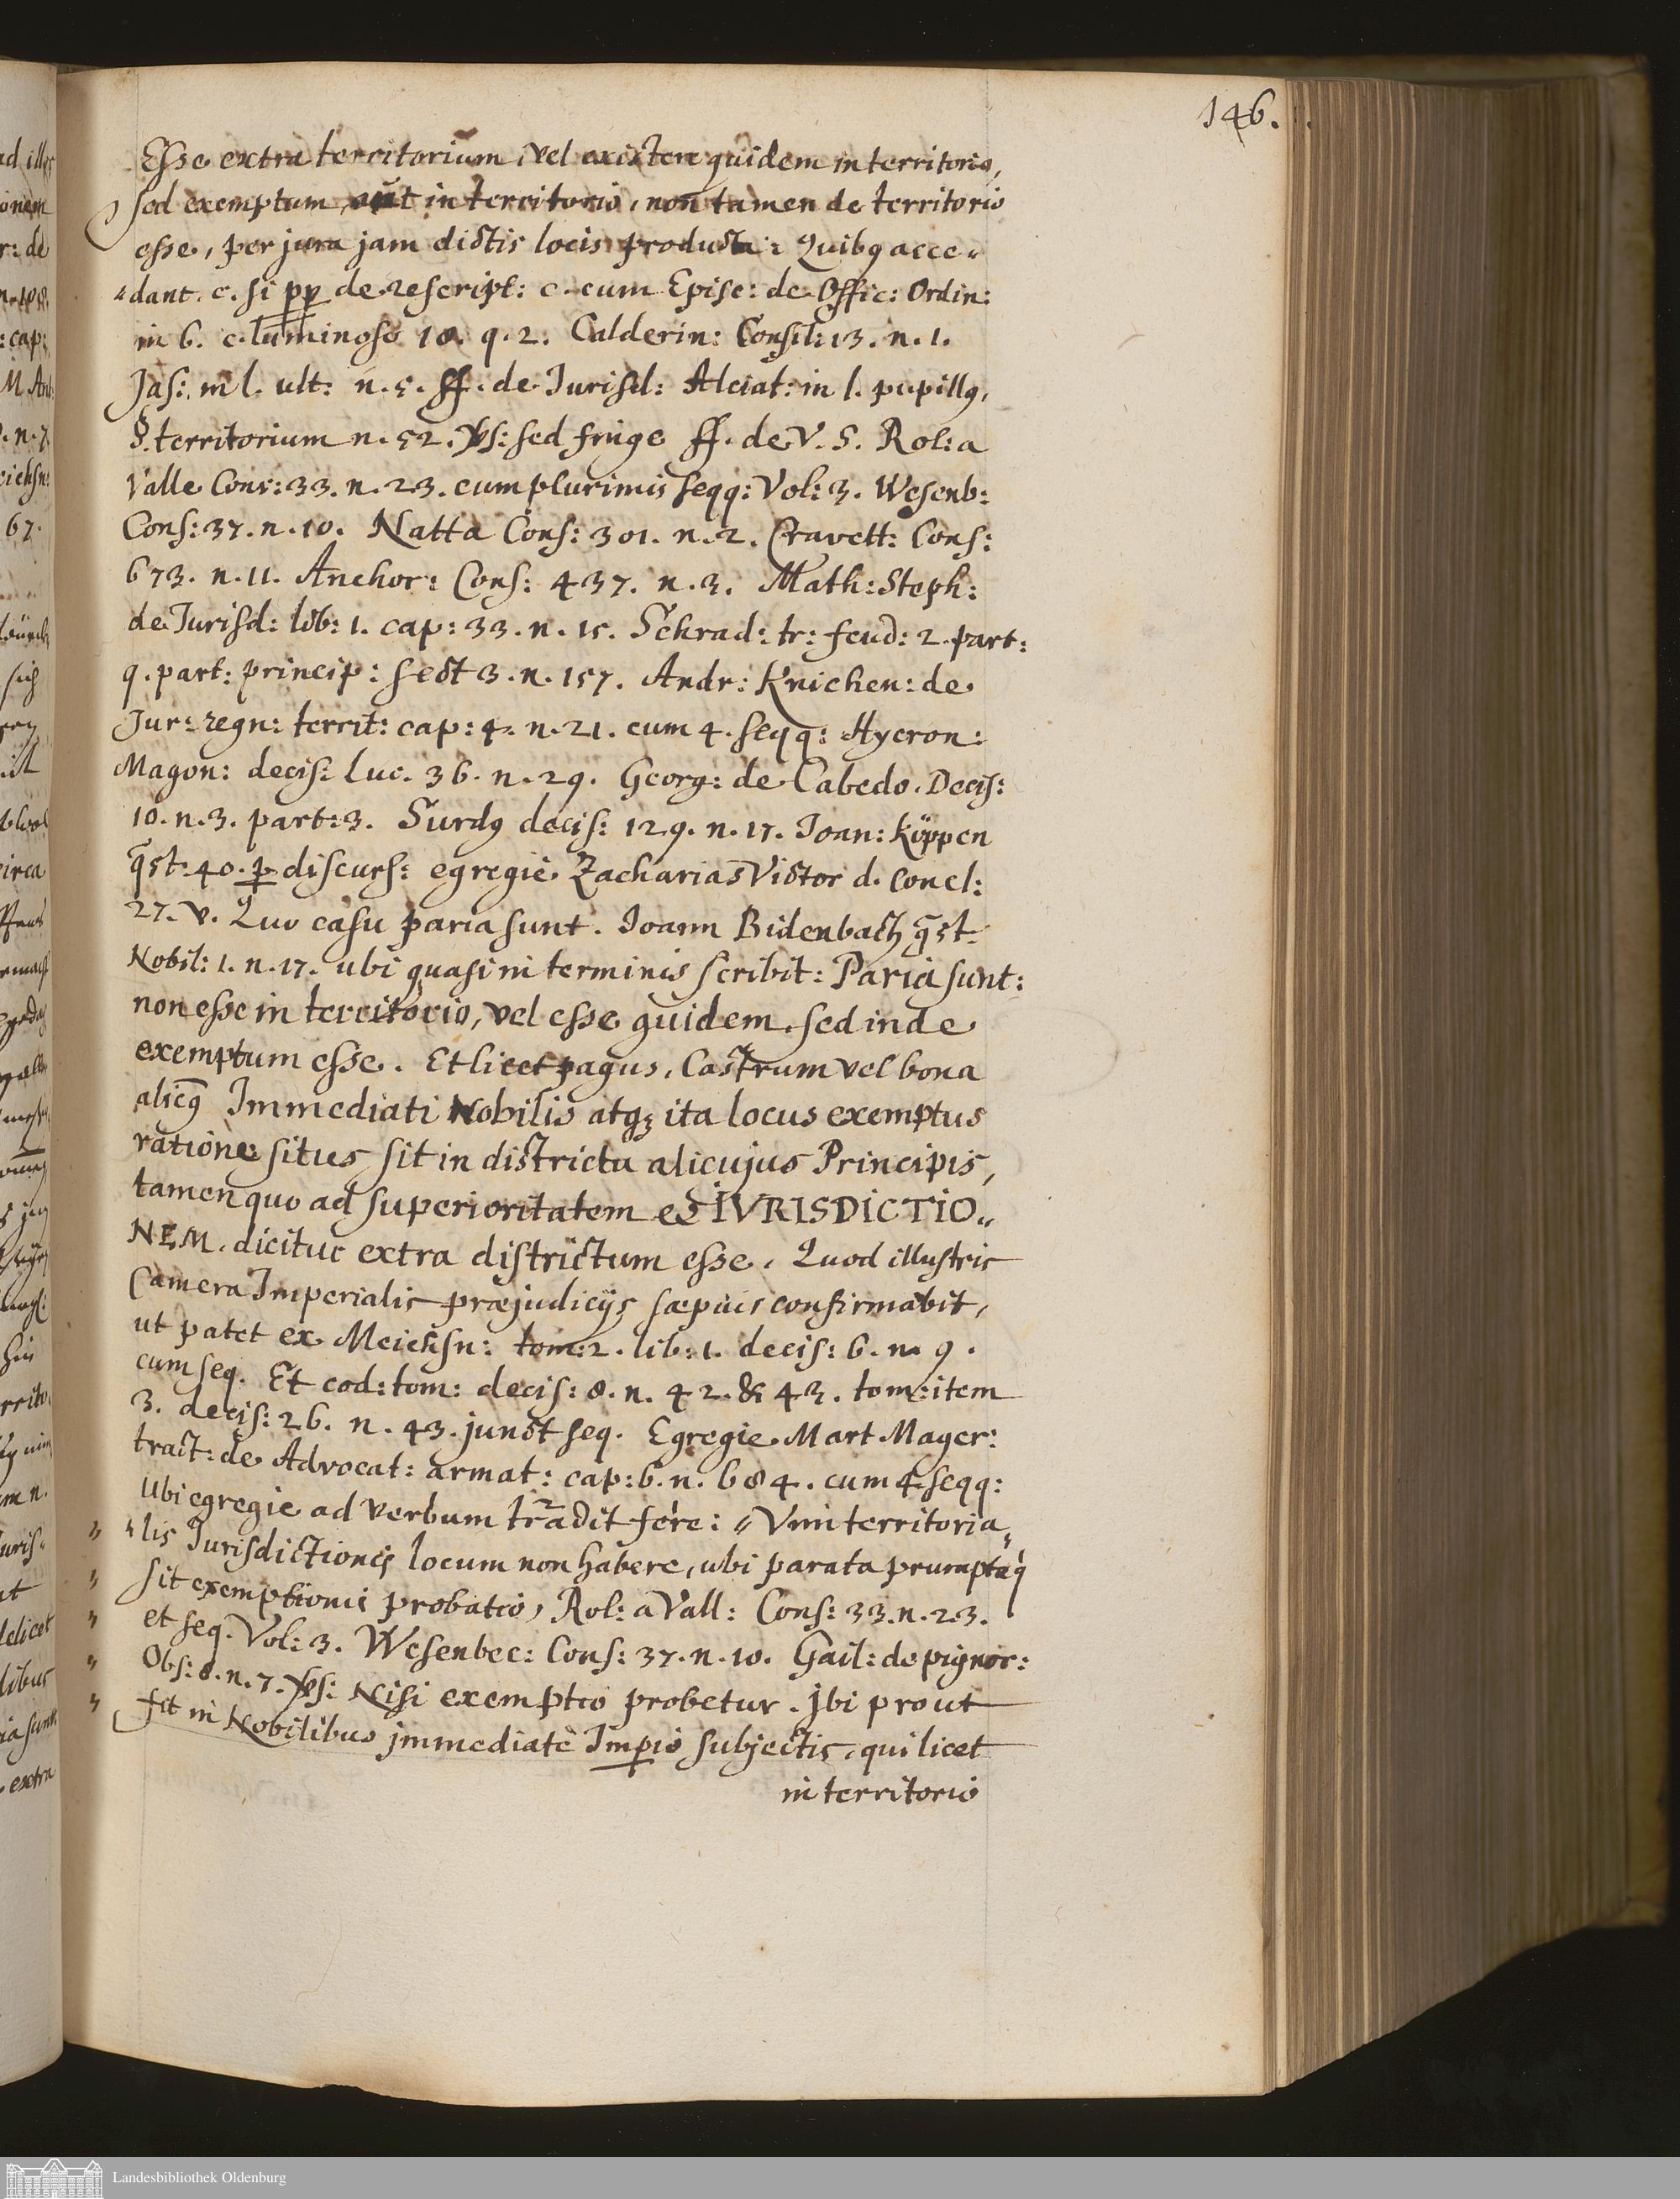 146.
Esse extra territorium, vel existere quidem in territorio,
sed exemptum, aut in territorio, non tamen de territorio
esse, per jura jam dictis locis producta: Quibꝯ acce„
„dant. c. si pp de rescript: c. cum Episc: de Offic: Ordin:
in 6. c. luminoso 18. q. 2. Calderin: Consil: 13. n. 1.
Jas: in l. ult: n. 5. ff. de Iurisd: Alciat: in l. pupillꝯ,
§. territorium n. 52. ꝟs: sed fruge ff. de V. S. Rol: a
Valle Cons: 33. n. 23. cum plurimis seqq: Vol: 3. Wesenb:
Cons: 37. n. 10. Natta Cons: 301. n. 2. Cravett: Cons:
673. n. 11. Anchor: Cons: 437. n. 3. Math: Steph:
de Jurisd: lib: 1. cap: 33. n. 15. Schrad: tr: feud: 2. part:
9. part: princip: sect 3. n. 157. Andr: Knichen: de
Jur: regn: territ: cap: 4. n. 21. cum 4. seqq: Hyeron:
Magon: decis: Luc. 36. n. 29. Georg: de Cabedo. Decis:
10. n. 3. part: 3. Surdꝯ decis: 129. n. 17. Ioan: Köppen
q̄st: 40. ꝑ discurs: egregie Zacharias Victor d. concl:
27. v. Quo casu paria sunt. Ioann Bidenbach q̄st:
Nobil: 1. n. 17. ubi quasi in terminis scribit: Paria sunt:
non esse in territorio, vel esse quidem, sed inde
exemptum esse. Et licet pagus, Castrum vel bona
alicꝯ Immediati Nobilis atqꝫ ita locus exemptus
ratione situs sit in districtu alicujus Principis,
tamen quo ad superioritatem et IVRISDICTIO„
NEM. dicitur extra districtum esse. Quod illustris
Camera Imperialis præjudicijs sæpius confirmabit,
ut patet ex Meichsn: tom: 2. lib: 1. decis: 6. n. 9.
cum seq. Et eod: tom: decis: 8. n. 42. & 43. tom: item
3. decis: 26. n. 43. junct seq. Egregie Mart Mager:
tract: de Advocat: armat: cap: 6. n. 684. cum 4 seqq:
Ubi egregie ad verbum tradit fere: „Vim territoria„
„lis Jurisdictionis locum non habere, ubi parata prumptaq́
sit exemptionis probatio, Rol: a Vall: Cons: 33. n. 23.
et seq. Vol: 3. Wesenbec: Cons: 37. n. 10. Gail: de pignor:
Obs: 8. n. 7. ꝟs: Nisi exemptio probetur. Ibi prout
fit in Nobilibus jmmediatè Imp̱io subjectis, qui licet
in territorio
Landesbibliothek Oldenburg